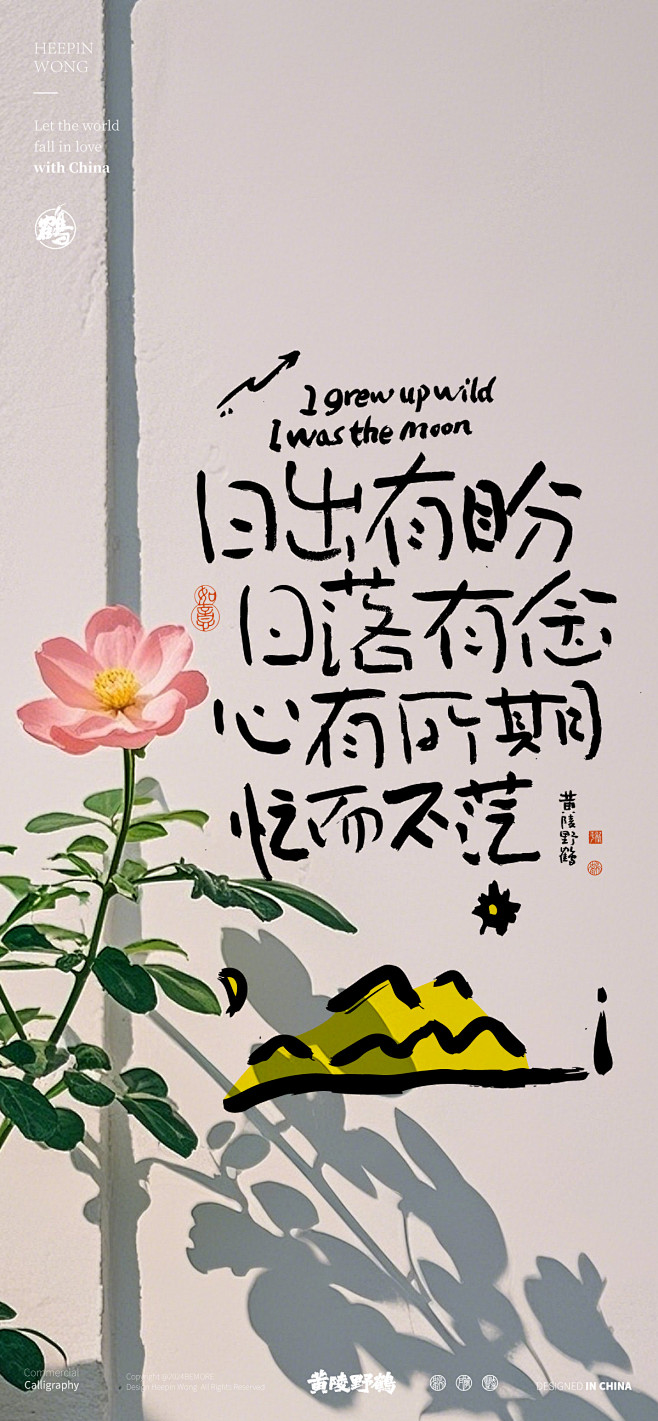 HEEPIN
WONG
Let the world
fall in love
with China
鶴
I grew up wild
I was the moon
日出有盼
日落有念
心有所期
忙而不茫
如意
黄陵野鶴
Commercial
Calligraphy
Design Heepin Wong. All Rights Reserved
黄陵野鶴
DESIGNED IN CHINA